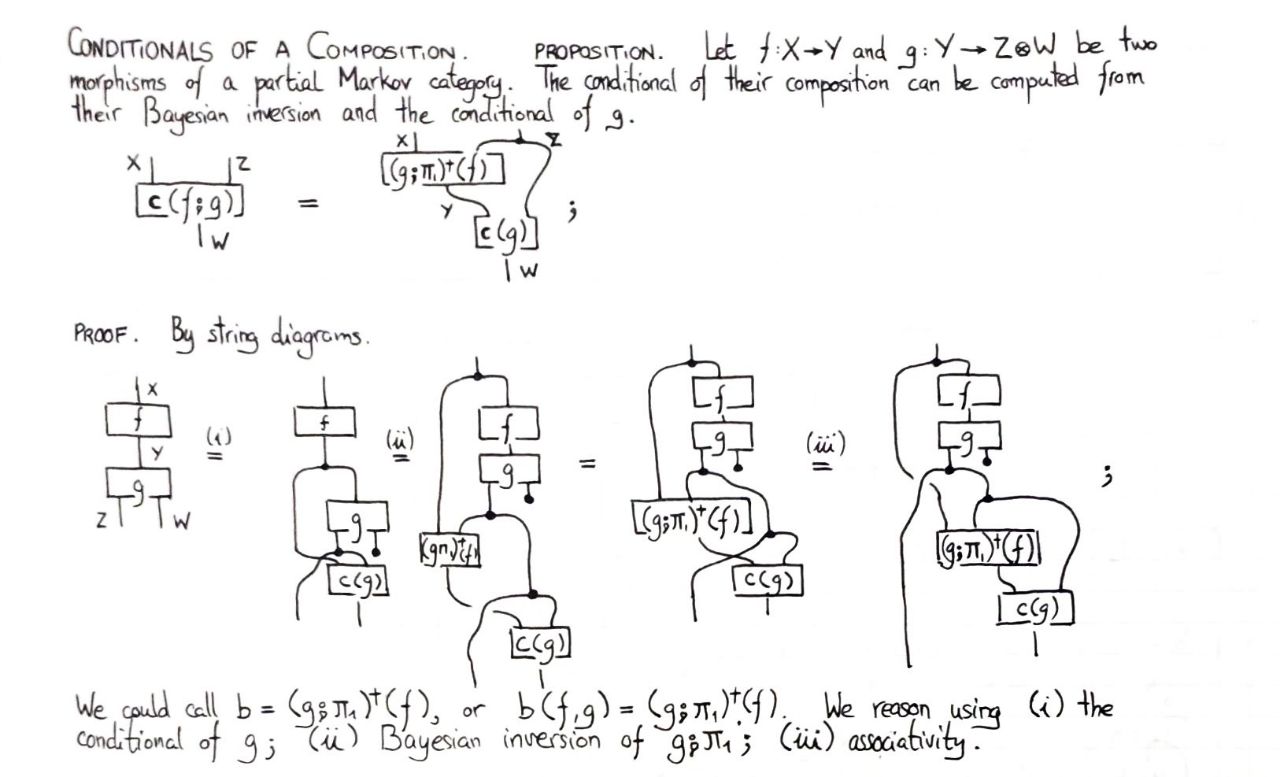 CONDITIONALS OF A COMPOSITION. PROPOSITION. Let f:X→Y and g:Y→Z⊗W be two
morphisms of a partial Markov category. The conditional of their composition can be computed from
their Bayesian inversion and the conditional of g.
X Z X Z
c(f;g) = (g;π₁)†(f) ;
W Y c(g) W
PROOF. By string diagrams.
X f Y g Z W
(i) =
f g c(g)
(ii) =
f g (gπ₁)†(f) c(g)
=
f g (g;π₁)†(f) c(g)
(iii) =
f g (g;π₁)†(f) c(g) ;
We could call b = (g;π₁)†(f), or b(f,g) = (g;π₁)†(f). We reason using (i) the
conditional of g; (ii) Bayesian inversion of g;π₁; (iii) associativity.